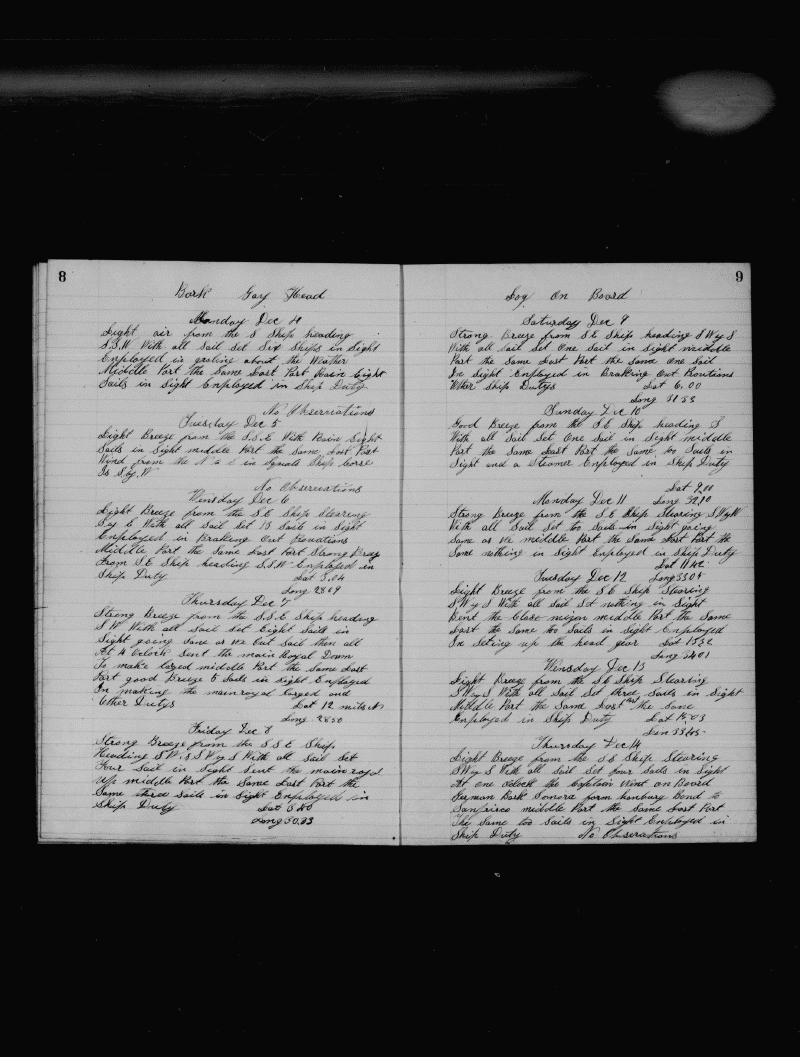 8
Bark Gay Head
Monday Dec 4
Light air from the S Ship heading
S.S.W With all Sail Set Six Ships in Sight
Employed in about the Weather
Middle Part the Same Last Part Rain Eight
Sails in Sight Employed in Ship Duty
No Observations
Tuesday Dec 5
Light Breeze from the S.S.E With Rain Eight
Sails in Sight middle Part the Same Last Part
Wind from the N & E in Squals Ship Corse
Is S.by.W
No Observations
Winsday Dec 6
Light Breeze from the S E Ship Stearing
S by E With all Sail Set 13 Sails in Sight
Employed in Braking Out
Middle Part the Same Last Part Strong Breze
From S.E Ship heading S.S.W Employed in
Ship Duty Lat 3.04
Long 28.09
Thursday Dec 7
Strong Breeze from the S.S.E Ship heading
S W With all Sail Set Eight Sails in
Sight going Same as we but Sail then all
At 4 Oclock Sent the main Royal Down
To make larged middle Part the Same Last
Part good Breeze 5 Sails in Sight Employed
In making the mainroyal larged and
Other Dutys Lat 12 miles N
Long 28.50
Friday Dec 8
Strong Breeze from the S S E Ship
Heading S W & S W by S With all Sail Set
Four Sail in Sight Sent the main royal
Up middle Part the Same Last Part the
Same three Sails in Sight Employed in
Ship Duty Lat
Long 30.33
9
Log On Board
Saturday Dec 9
Strong Breeze from S E Ship heading S W by S
With all Sail Set One Sail in Sight middle
Part the Same Last Part the Same One Sail
In Sight Employed in Braking Out
Other Ship Dutys Lat 6.00
Long 31.33
Sunday Dec 10
Good Breeze from the S.E Ship heading S
With all Sail Set One Sail in Sight middle
Part the Same Last Part the Same too Sails in
Sight and a Steamer Employed in Ship Duty
Lat 9.00
Monday Dec 11 Long 32.10
Strong Breeze from the S E Ship Stearing S W by W
With all Sail Set too Sails in Sight going
Same as We middle Part the Same Last Part the
Same nothing in Sight Employed in Ship Duty
Lat 11.42
Tuesday Dec 12 Long 33.05
Light Breeze from the S E Ship Stearing
S W by S With all Sail Set nothing in Sight
Bent the Close mizen middle Part the Same
Last the Same two Sails in Sight Employed
In Seting up the head gear Lat 13.32
Long 34.01
Winsday Dec 13
Light Breeze from the S E Ship Stearing
S W by S With all Sail Set three Sails in Sight
Middle Part the Same Last Part the Same
Employed in Ship Duty Lat 15.03
Lon 33.45
Thursday Dec 14
Light Breeze from the S E Ship Stearing
S W by S With all Sail Set four Sails in Sight
At one oclock the Captain Went on Board
German Bark Sonora form hamburg Bond to
Sanfrisco middle Part the Same Last Part
The Same too Sails in Sight Employed in
Ship Duty No Obserations